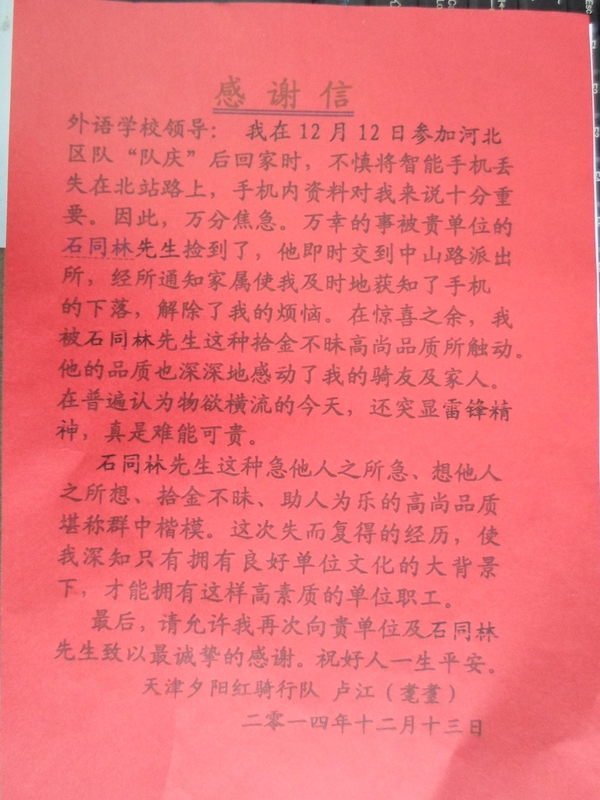 感谢信
外语学校领导： 我在12月12日参加河北
区队“队庆”后回家时，不慎将智能手机丢
失在北站路上，手机内资料对我来说十分重
要。因此，万分焦急。万幸的事被贵单位的
石同林先生捡到了，他即时交到中山路派出
所，经所通知家属使我及时地获知了手机
的下落，解除了我的烦恼。在惊喜之余，我
被石同林先生这种拾金不昧高尚品质所触动。
他的品质也深深地感动了我的骑友及家人。
在普遍认为物欲横流的今天，还突显雷锋精
神，真是难能可贵。
石同林先生这种急他人之所急、想他人
之所想、拾金不昧、助人为乐的高尚品质
堪称群中楷模。这次失而复得的经历，使
我深知只有拥有良好单位文化的大背景
下，才能拥有这样高素质的单位职工。
最后，请允许我再次向贵单位及石同林
先生致以最诚挚的感谢。祝好人一生平安。
天津夕阳红骑行队 卢江（耄耋）
二零一四年十二月十三日